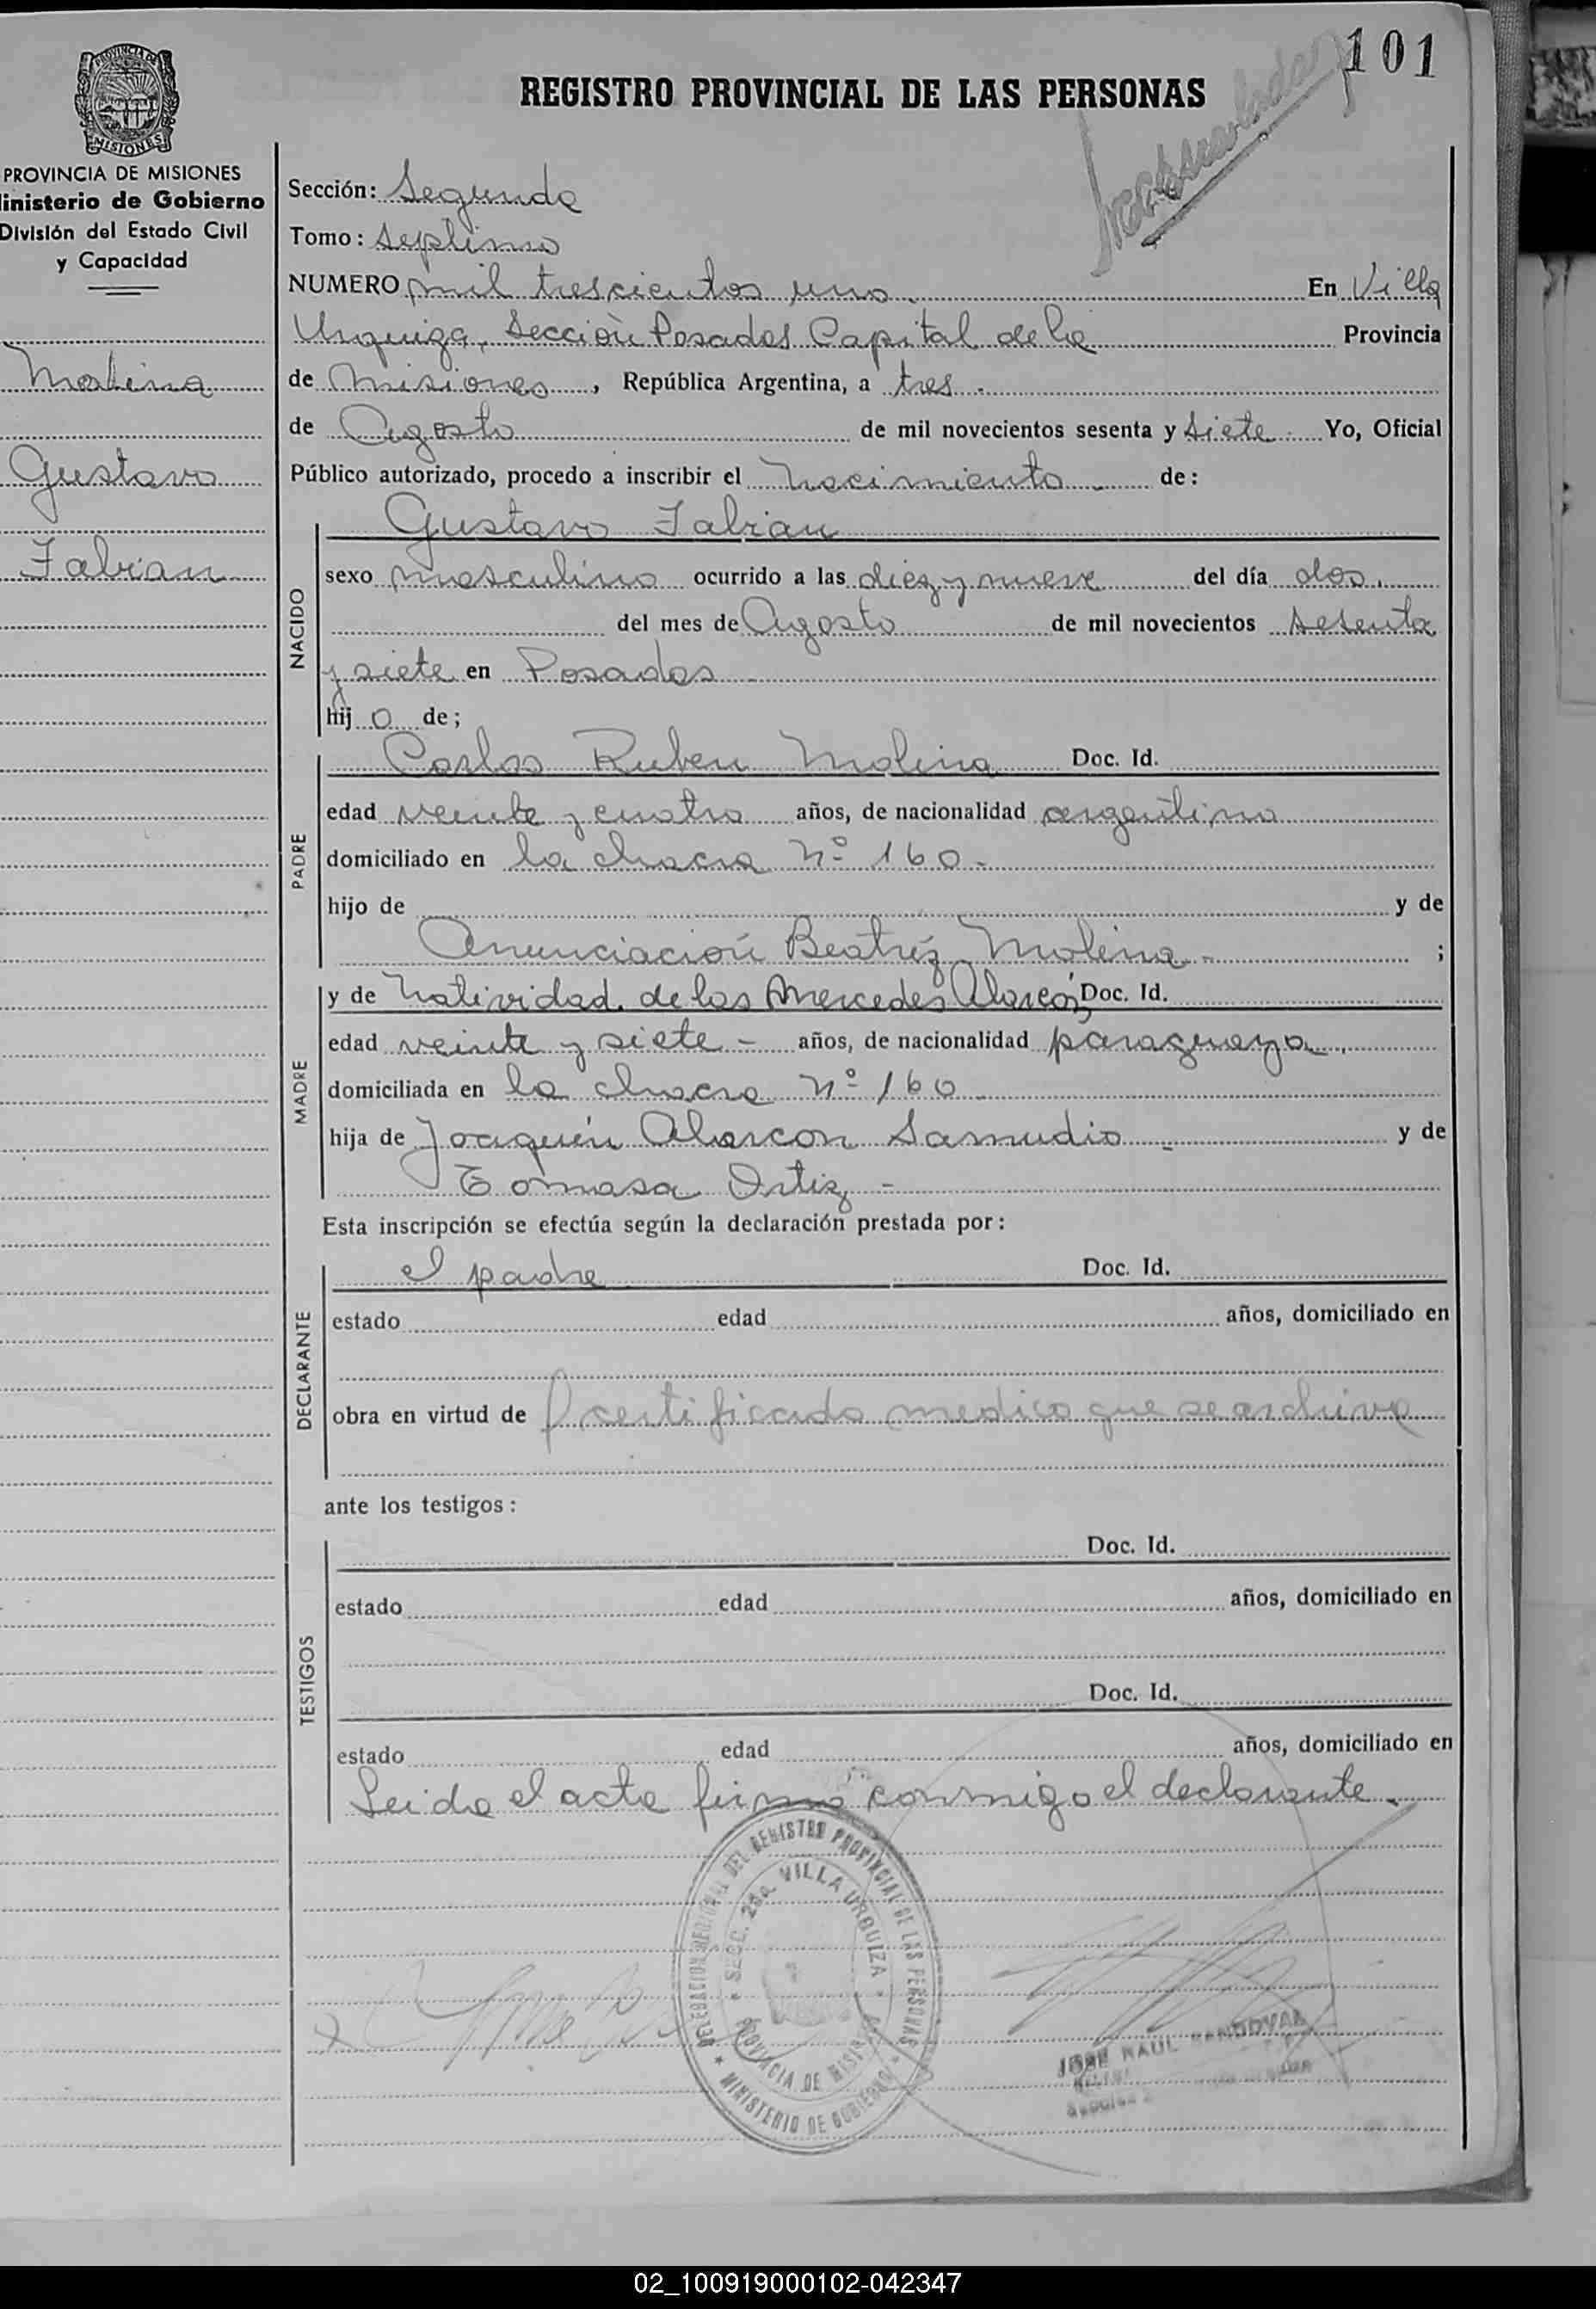 101
REGISTRO PROVINCIAL DE LAS PERSONAS
PROVINCIA DE MISIONES
PROVINCIA DE MISIONES
Ministerio de Gobierno
División del Estado Civil
y Capacidad
Molina
Gustavo
Fabian
Sección: Segunda
Tomo: Septimo
NUMERO mil trescientos uno. En Villa
Urquiza, Sección Posadas Capital de la Provincia
de Misiones, República Argentina, a tres.
de Agosto de mil novecientos sesenta y siete. Yo, Oficial
Público autorizado, procedo a inscribir el Nacimiento de:
Gustavo Fabian
NACIDO
sexo masculino ocurrido a las diez y nueve del día dos.
del mes de Agosto de mil novecientos sesenta
y siete en Posadas
hij o de;
PADRE
Carlos Ruben Molina Doc. Id.
edad veinte y cuatro años, de nacionalidad argentino
domiciliado en la chacra Nº 160-
hijo de y de
Anunciación Beatríz Molina - ;
MADRE
y de Natividad de las Mercedes Alarcón Doc. Id.
edad veinte y siete - años, de nacionalidad paraguaya.
domiciliada en la chacra Nº 160
hija de Joaquín Alarcon Samudio - y de
Tomasa Ortiz -
Esta inscripción se efectúa según la declaración prestada por:
DECLARANTE
el padre Doc. Id.
estado edad años, domiciliado en
obra en virtud de certificado medico que se archiva
ante los testigos:
TESTIGOS
Doc. Id.
estado edad años, domiciliado en
Doc. Id.
estado edad años, domiciliado en
Leida el acta firmó conmigo el declarante.
DELEGACION REGIONAL DEL REGISTRO PROVINCIAL DE LAS PERSONAS
SECC. 2da. VILLA URQUIZA
PROVINCIA DE MISIONES
MINISTERIO DE GOBIERNO
JOSE RAUL SANDOVAL
02_100919000102-042347